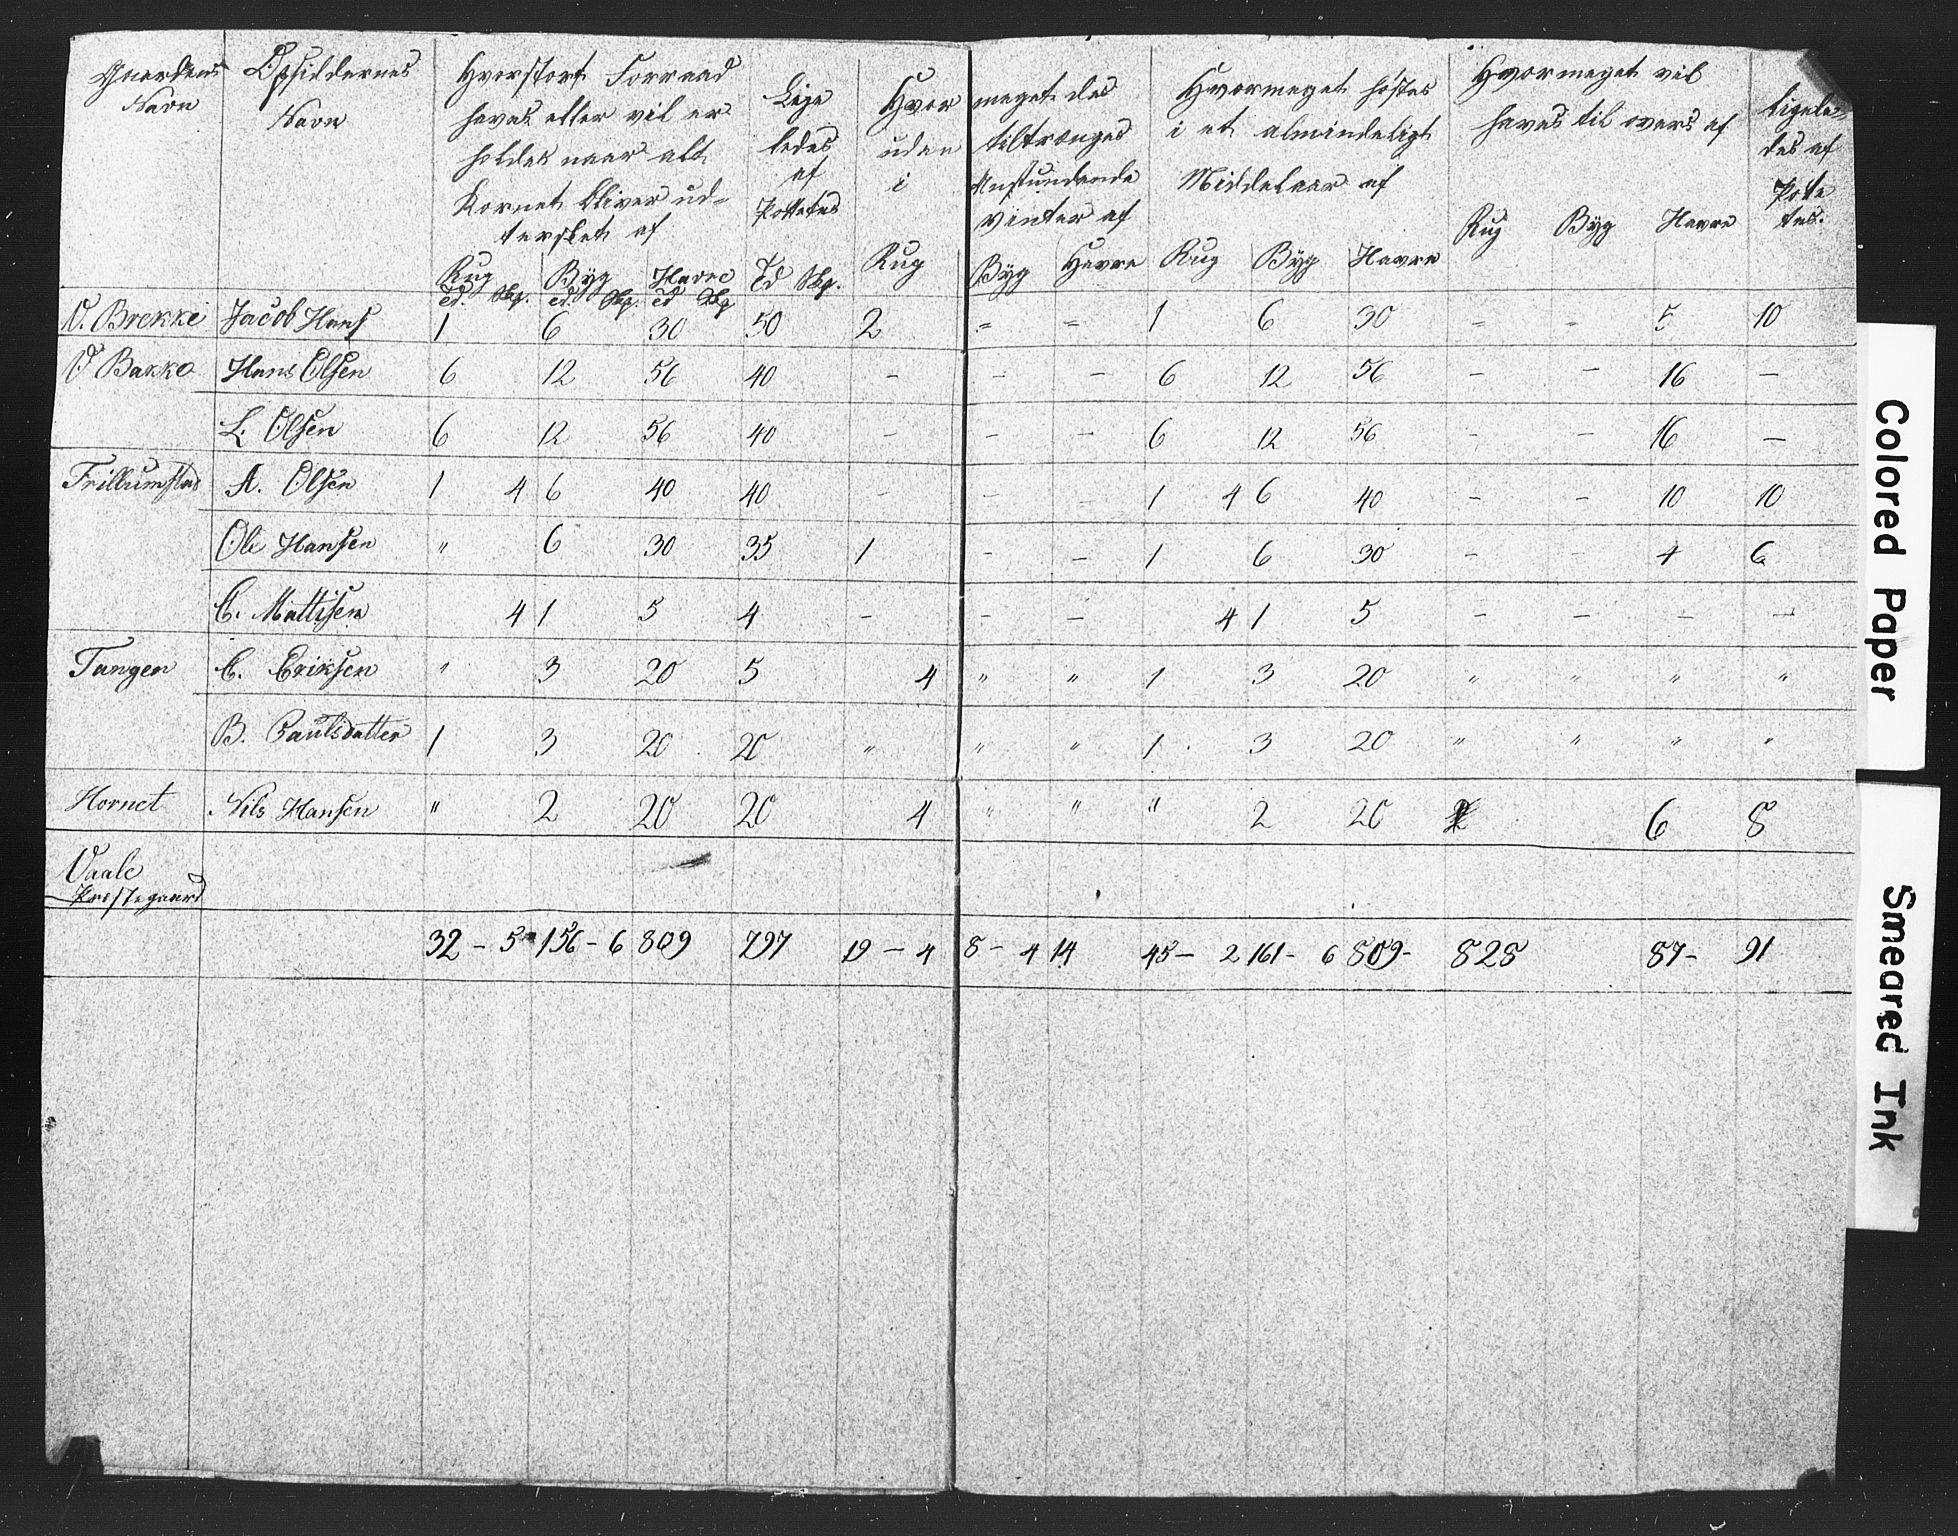 Gaardens Navn | Opsiddernes Navn | Hvorstort Forraad haves eller vil er holdes naar alt Kornet bliver ud= tersket af | Lige ledes af Pottetes | Hvor meget des uden tiltrænges i Anstundende Vinter af | Hvormeget høstes i et almindeligt Middelaar af | Hvormeget vil haves til overs af | ligele= des af Pote tes.
Rug Td. Skp. | Byg Td. Skp. | Havre Td Skp | Td Skp. | Rug | Byg | Havre | Rug | Byg | Havre | Rug | Byg | Havre
V. Brekke | Jacob Hans | 1 | 6 | 30 | 50 | 2 | " | " | 1 | 6 | 30 | " | " | 5 | 10
V Bakke | Hans Olsen | 6 | 12 | 56 | 40 | - | - | - | 6 | 12 | 56 | - | - | 16 | -
L. Olsen | 6 | 12 | 56 | 40 | - | - | - | 6 | 12 | 56 | - | - | 16 | -
Trillumstad | A. Olsen | 1 4 | 6 | 40 | 40 | - | - | - | 1 4 | 6 | 40 | - | - | 10 | 10
Ole Hansen | " | 6 | 30 | 35 | 1 | - | - | 1 | 6 | 30 | - | - | 4 | 6
C. Mattisen | 4 | 1 | 5 | 4 | - | - | - | 4 | 1 | 5 | - | - | - | -
Tangen | C. Eriksen | " | 3 | 20 | 5 | 4 | " | " | 1 | 3 | 20 | " | " | " | "
B. Paulsdatter | 1 | 3 | 20 | 20 | " | " | " | 1 | 3 | 20 | " | " | " | "
Hornet | Nils Hansen | " | 2 | 20 | 20 | 4 | " | " | " | 2 | 20 | 6 | 8
Vaale
Prestegaard
32 - 5 | 156 - 6 | 809 | 797 | 19 - 4 | 8 - 4 | 14 | 45 - 2 | 161 - 6 | 809- | 828 | 87- | 91
Colored Paper
Smeared Ink